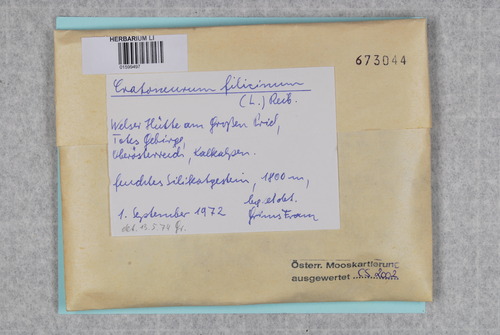 HERBARIUM LI
01599497
673044
Cratoneurum filicinum
(L.) Roth.
Welser Hütte am Großen Priel,
Totes Gebirge,
Oberösterreich, Kalkalpen.
feuchtes Silikatgestein, 1800 m,
leg. et det.
1. September 1972 Grims Franz
det. 13.5.79 Gr.
Österr. Mooskartierung
ausgewertet CS 2002